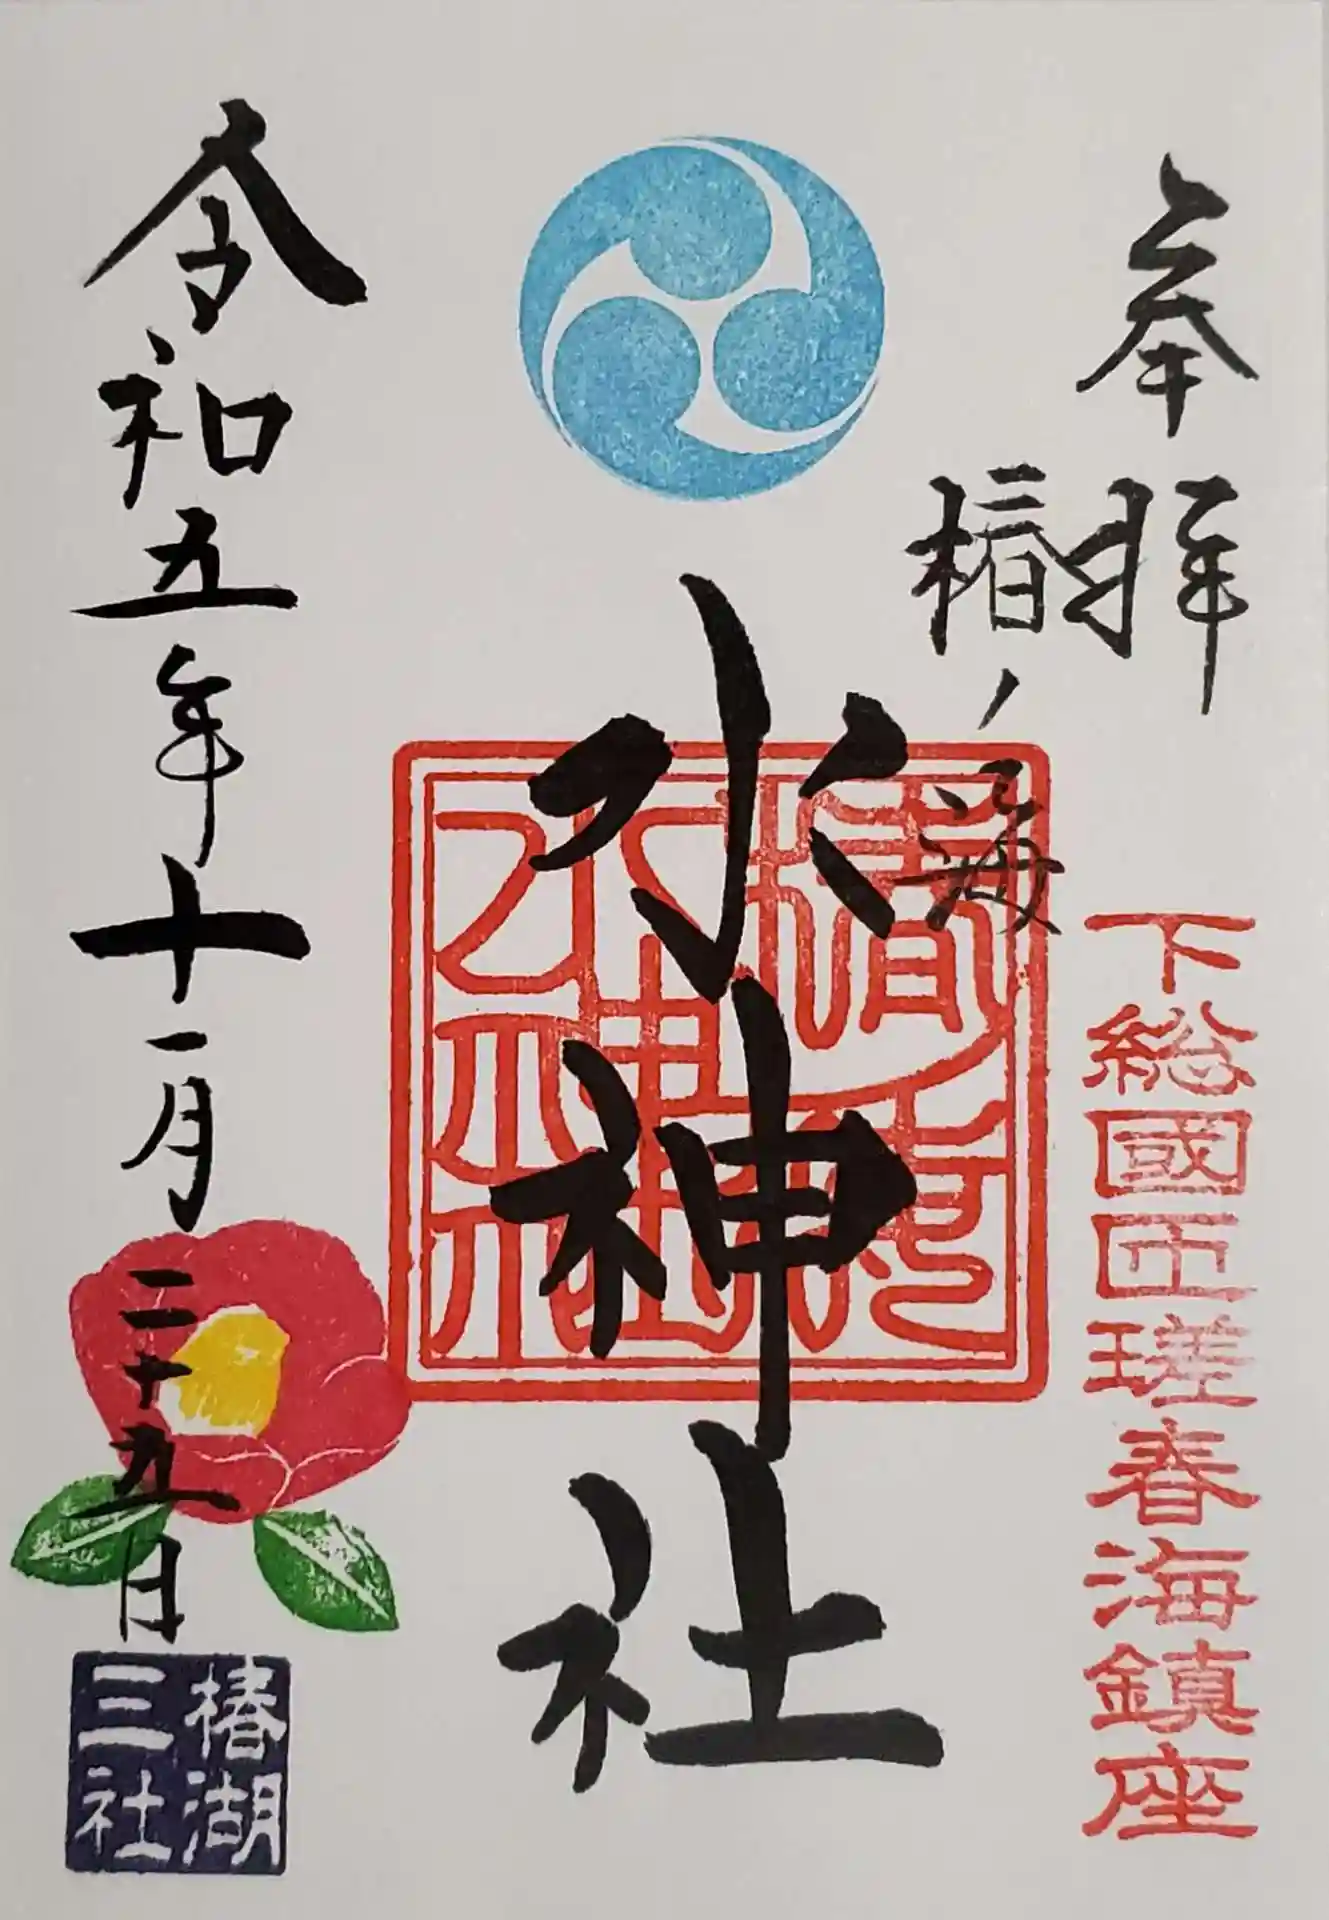 奉拝
下総國匝瑳春海鎮座
椿ノ海
水神社
令和五年十一月二十九日
椿湖
三社